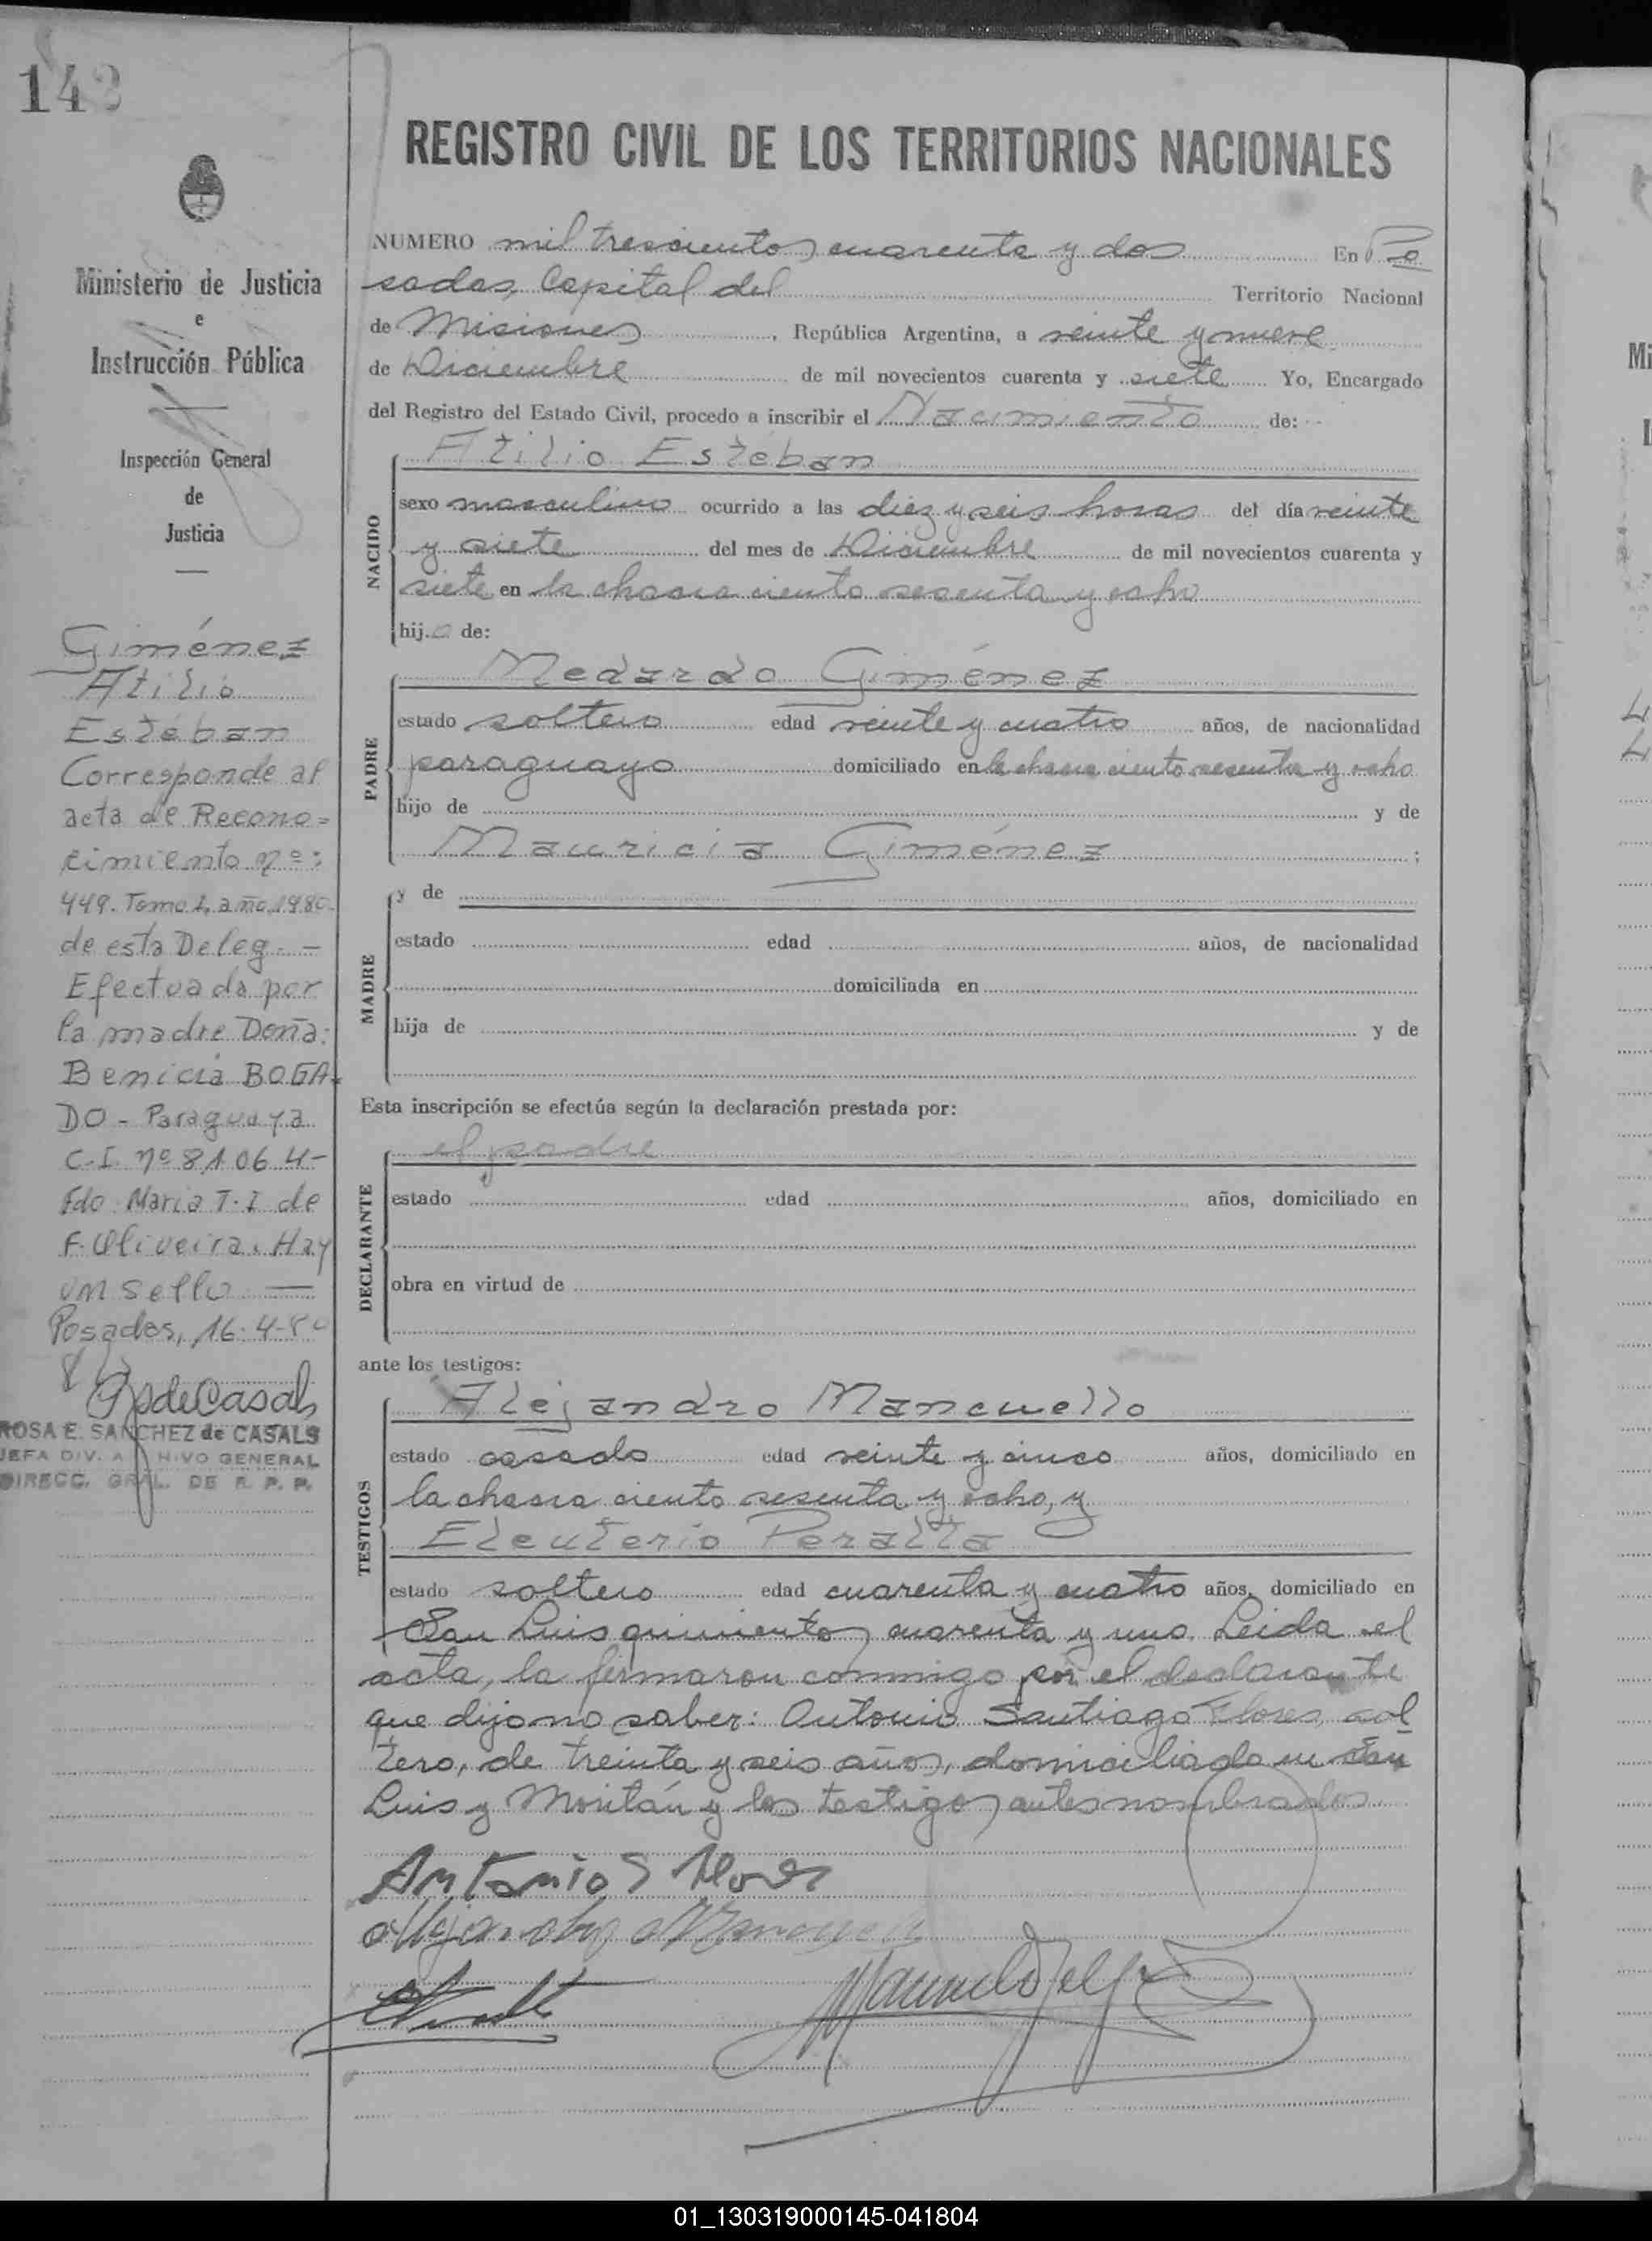 142
REGISTRO CIVIL DE LOS TERRITORIOS NACIONALES
Ministerio de Justicia
e
Instrucción Pública
Inspección General
de
Justicia
Giménez
Atilio
Estéban
Corresponde al
acta de Recono=
cimiento nº:
449. Tomo 1, año 1980.
de esta Deleg. —
Efectuada por
la madre Doña:
Benicia BOGA-
DO - Paraguaya
C.I. nº 81064-
Fdo. María T. I de
F. Oliveira. Hay
un sello —
Posadas, 16-4-80
ROSA E. SANCHEZ de CASALS
JEFA DIV. ARCHIVO GENERAL
DIRECC. GRAL. DE R. P. P.
NUMERO mil trescientos cuarenta y dos En Po
sadas, Capital del Territorio Nacional
de Misiones, República Argentina, a veinte y nueve
de Diciembre de mil novecientos cuarenta y siete Yo, Encargado
del Registro del Estado Civil, procedo a inscribir el Nacimiento de:
NACIDO
Atilio Estéban
sexo masculino ocurrido a las diez y seis horas del día veinte
y siete del mes de Diciembre de mil novecientos cuarenta y
siete en la chacra ciento sesenta y ocho
hijo de:
PADRE
Medardo Giménez
estado soltero edad veinte y cuatro años, de nacionalidad
paraguayo domiciliado en la chacra ciento sesenta y ocho
hijo de y de
Mauricia Giménez ;
MADRE
y de
estado edad años, de nacionalidad
domiciliada en
hija de y de
Esta inscripción se efectúa según la declaración prestada por:
DECLARANTE
el padre
estado edad años, domiciliado en
obra en virtud de
ante los testigos:
TESTIGOS
Alejandro Mancuello
estado casado edad veinte y cinco años, domiciliado en
la chacra ciento sesenta y ocho, y
Eleuterio Peralta
estado soltero edad cuarenta y cuatro años, domiciliado en
San Luis quinientos cuarenta y uno. Leida el
acta, la firmaron conmigo por el declarante
que dijo no saber: Antonio Santiago Flores, sol
tero, de treinta y seis años, domiciliado en San
Luis y Moritán y los testigos antes nombrados.
Antonio S Flores
01_130319000145-041804